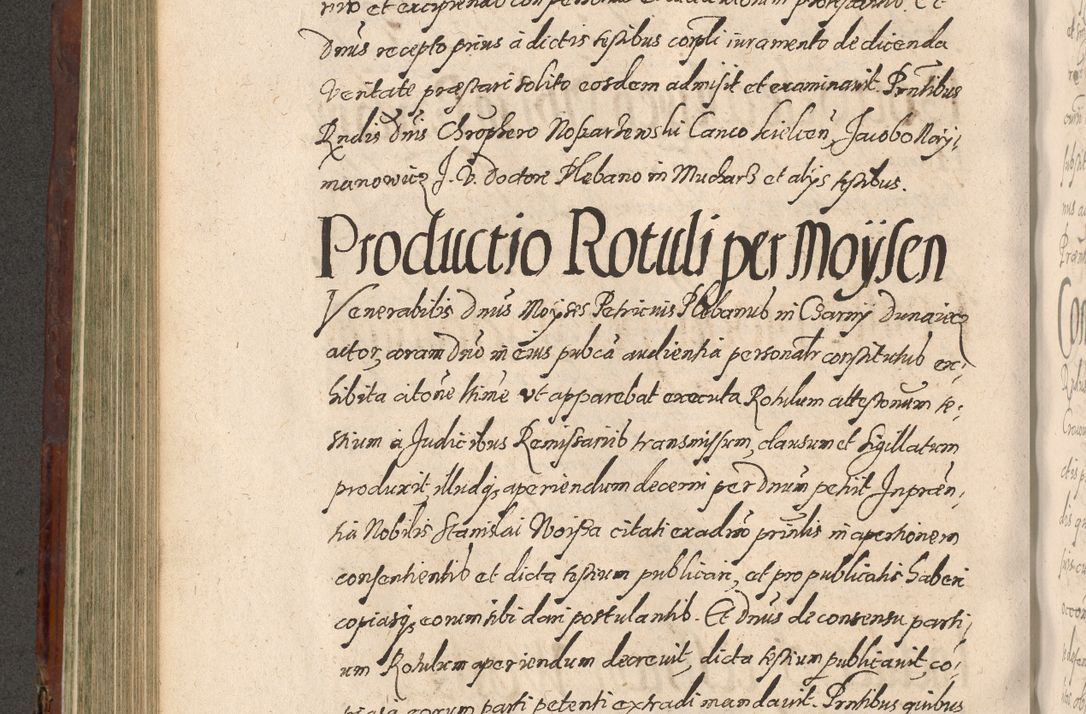 Dnus recepto prius a dictis testibus corpli iuramento de dicenda
Veritate præstari solito eosdem admisit et examinavit. Pntibus
Rndis Dnis Chrophero Noskarzewski Canco Kielcen, Jacobo Nay,
manowicz J. V. Doctore Plebano in Mucharz et alijs testibus.
Productio Rotuli per Moÿsen
Venerabilis Dnus Moÿses Petricius Plebanus in Czarnÿ Dunaiecz
actor, coram Dno in eius pubca audientia personalr constitutus ex,
hibita citone hinc ut apparebat executa Rotulum attestonum te,
stium a Judicibus Remissariis transmissum, clausum et sigillatum
produxit, illudq, aperiendum decerni per Dnum petiit. In præn,
tia Nobilis Stanislai Woissa citati ex adño prinlis in apertionem
consentientis et dicta testium publicari, et pro publicatis haberi
copiasq, eorum sibi dari postulantis. Et Dnus de consensu parti,
um Rotulum aperiendum decrevit, dicta testium publicavit, co,
piasq eorum parti petenti extradi mandavit. Pntibus quibus